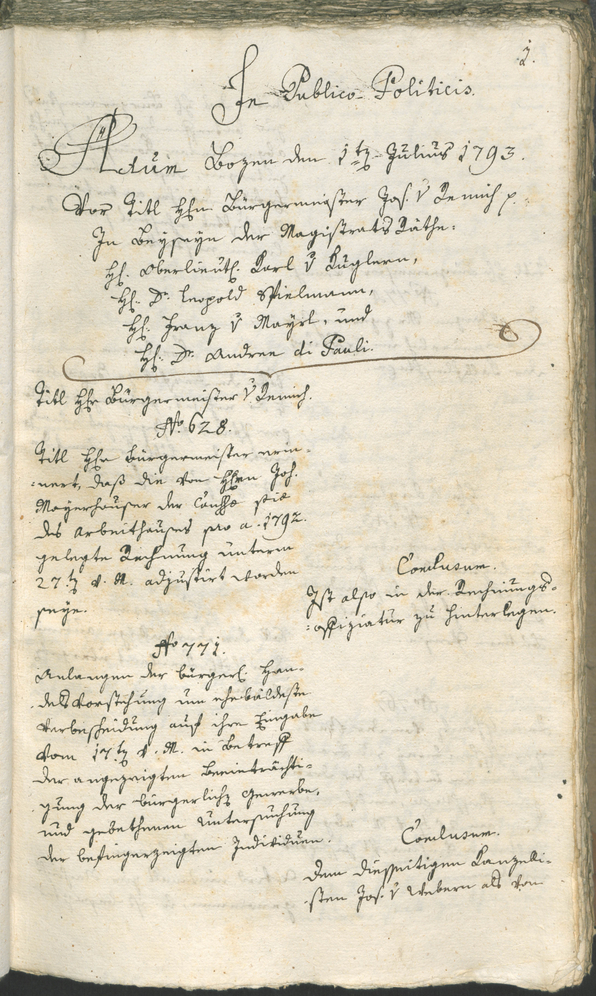 1.
In Publico Politicis.
Actum Bozen den 1ten Julius 1793.
Vor Titl Hhn. Bürgermeister Jos. v Remich p.
In Beyseyn der Magistrats Räthe:
Hh. Oberlieuth. Karl v Kuglern,
Hh. Dr. Leopold Spielmann,
Hh. Franz v Mayrl, und
Hh. Dr. Andree di Pauli.
Titl Hhr Bürgermeister v Remich.
No. 628.
Titl Hhr Bürgermeister erin-
nert, daß die von Hhrn Joh.
Mayrhauser der
des Arbeithauses pro a. 1792.
gelegte Rechnung unterm
27t v. M. adjustirt worden
seye.
Conclusum.
Ist also in der Rechnungs-
offiziatur zu hinterlegen.
No 771.
Anlangen der bürgerl. Han-
delsvorstehung um ehebäldeste
Verbescheidung auf ihre Eingabe
vom 17t v. M. in Betreff
der angezeigten Beeinträchti-
gung der bürgerlich Gewerbe,
und gebethenen Untersuchung
der befingerzeigten Individuen.
Conclusum.
Dem diesseitigen Kanzelli-
sten Jos. v Webern als von